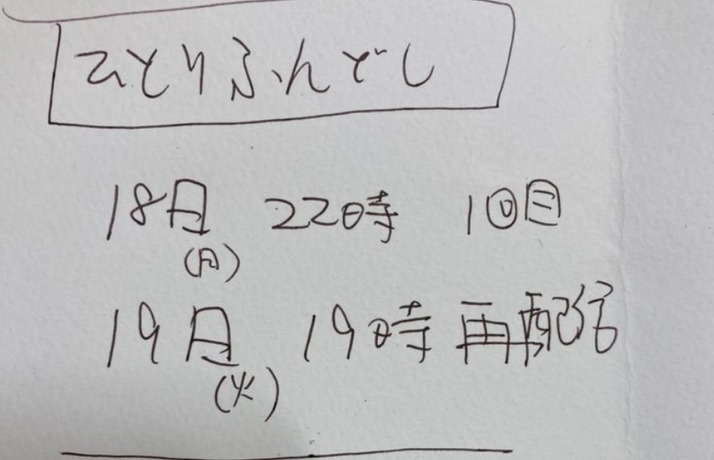 ひとりふんどし
18日 22時 1回目
(月)
19日 19時 再配信
(火)